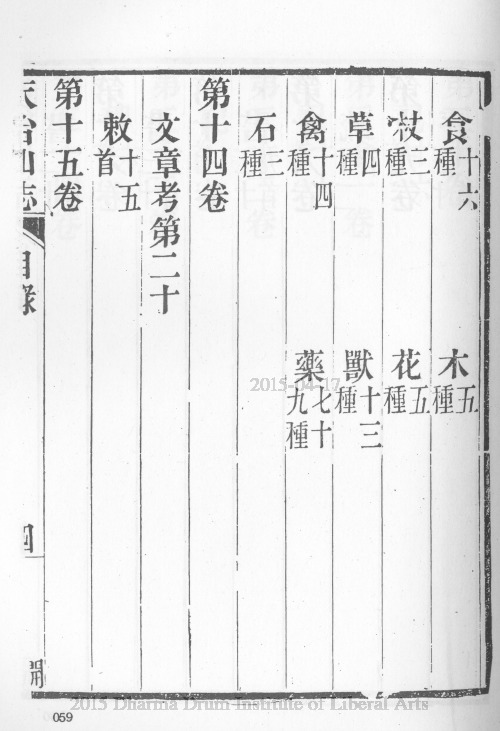 食十六種 木五種
三種 花五種
草四種 獸十三種
禽十四種 藥七十九種
石三種
第十四卷
文章考第二十
敕十五首
第十五卷
天台山志 目錄 四
2015-04-17
2015 Dharma Drum Institute of Liberal Arts
059